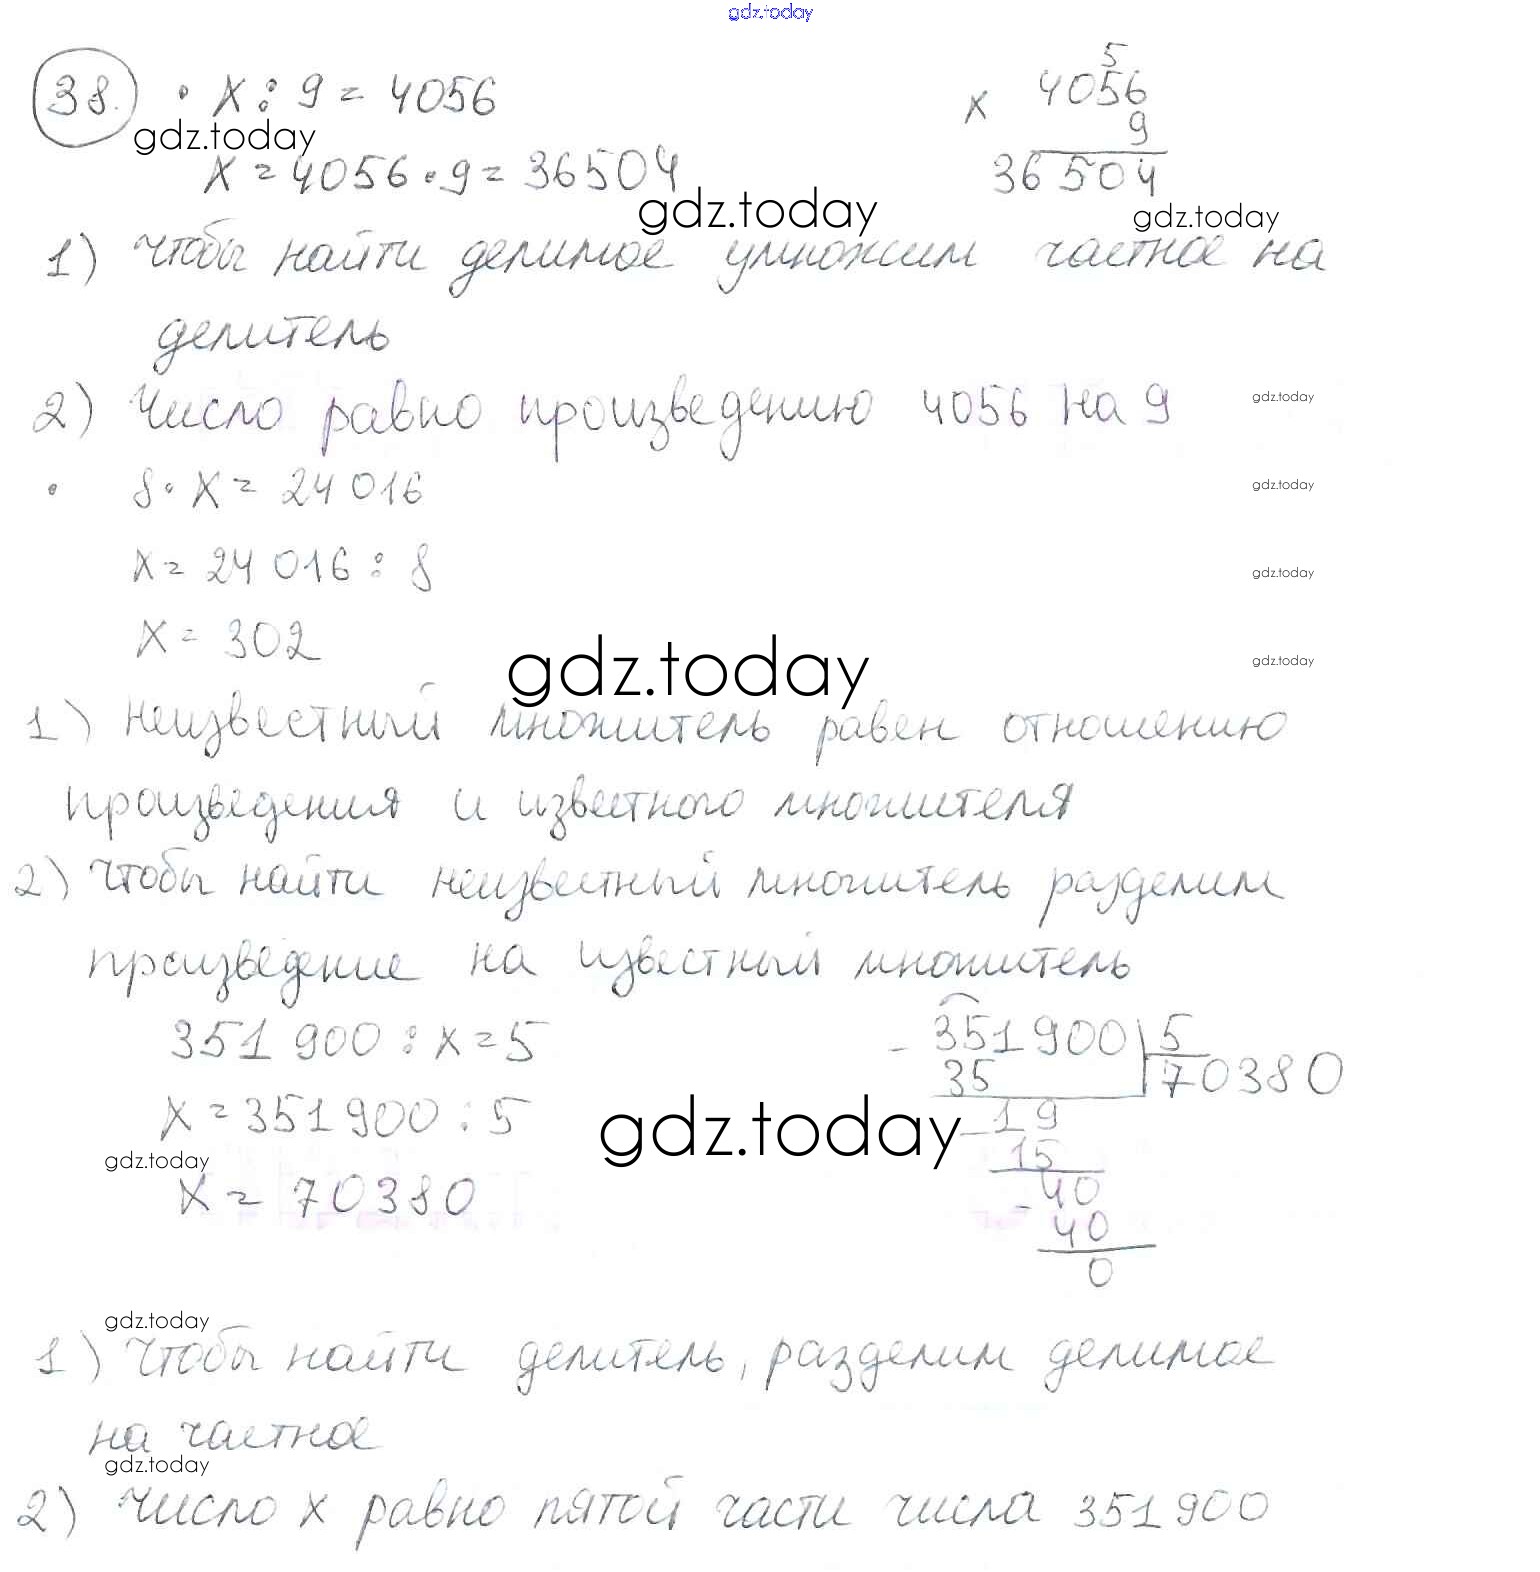 gdz.today
38. • x : 9 = 4056
5
x 4056
9
36504
gdz.today
x = 4056 · 9 = 36504
gdz.today
gdz.today
1) Чтобы найти делимое умножим частное на
делитель
2) Число равно произведению 4056 на 9
gdz.today
• 8 · x = 24 016
gdz.today
x = 24 016 : 8
gdz.today
x = 302
gdz.today
gdz.today
1) Неизвестный множитель равен отношению
произведения и известного множителя
2) Чтобы найти неизвестный множитель разделим
произведение на известный множитель
351 900 : x = 5
x = 351 900 : 5
gdz.today
x = 70380
- 351900 | 5
35 70380
gdz.today
- 19
15
- 40
40
0
gdz.today
1) Чтобы найти делитель, разделим делимое
на частное
gdz.today
2) Число x равно пятой части числа 351 900